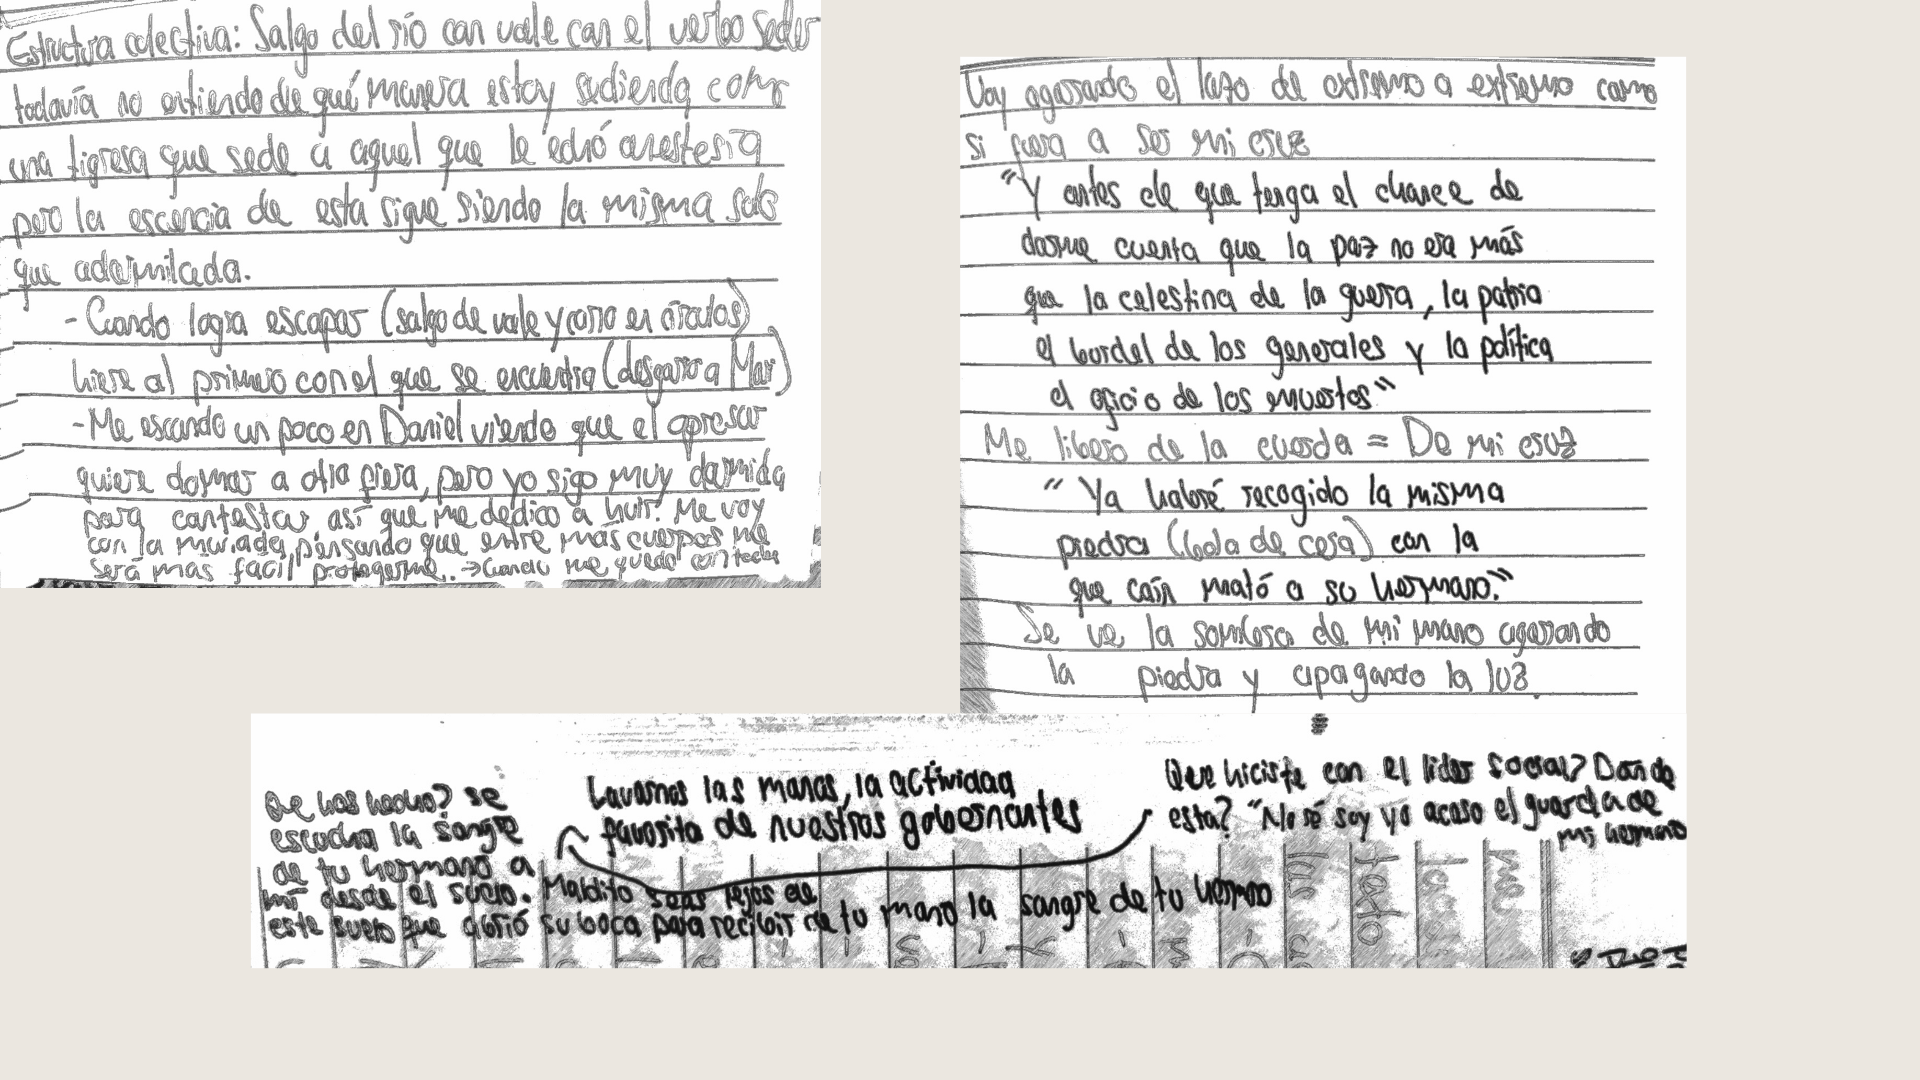 Estructura colectiva: Salgo del río con vale con el verbo seder
todavía no entiendo de qué manera estoy sediendo como
una tigresa que sede a aquel que le echó anestesia
pero la escencia de esta sigue siendo la misma solo
que adormilada.
- Cuando logra escapar (salgo de vale y corro en círculos)
hiere al primero con el que se encuentra (desgarro a Mar)
- Me escondo un poco en Daniel viendo que el opresor
quiere domar a otra fiera, pero yo sigo muy dormida
para contestar, así que me dedico a huir. Me voy
con la manada, pensando que entre más cuerpos me
será más facil protegerme. → Cuando me quedo con todos
Voy agarrando el lazo de extremo a extremo como
si fuera a ser mi cruz
"Y antes de que tenga el chance de
darme cuenta que la paz no era más
que la celestina de la guerra, la patria
el burdel de los generales y la política
el oficio de los muertos"
Me libero de la cuerda = De mi cruz
"Ya habré recogido la misma
piedra (bola de cera) con la
que caín mató a su hermano."
Se ve la sombra de mi mano agarrando
la piedra y apagando la luz.
Que has hecho? se
escucha la sangre
de tu hermano a
mí desde el suelo. Maldito seas lejos de
este suelo que abrió su boca para recibir de tu mano la sangre de tu hermano
Lavarnos las manos, la actividad
favorita de nuestros gobernantes
Que hiciste con el lider social? Donde
esta? "No sé soy yo acaso el guarda de
mi hermano